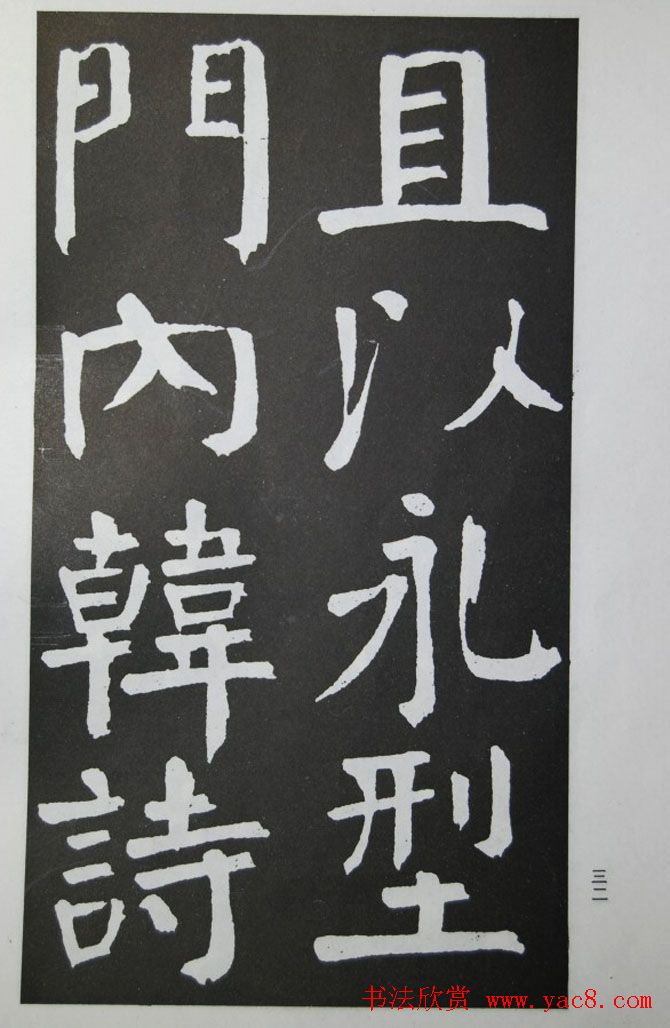 且以永型
門內韓詩
三二
书法欣赏 www.yac8.com